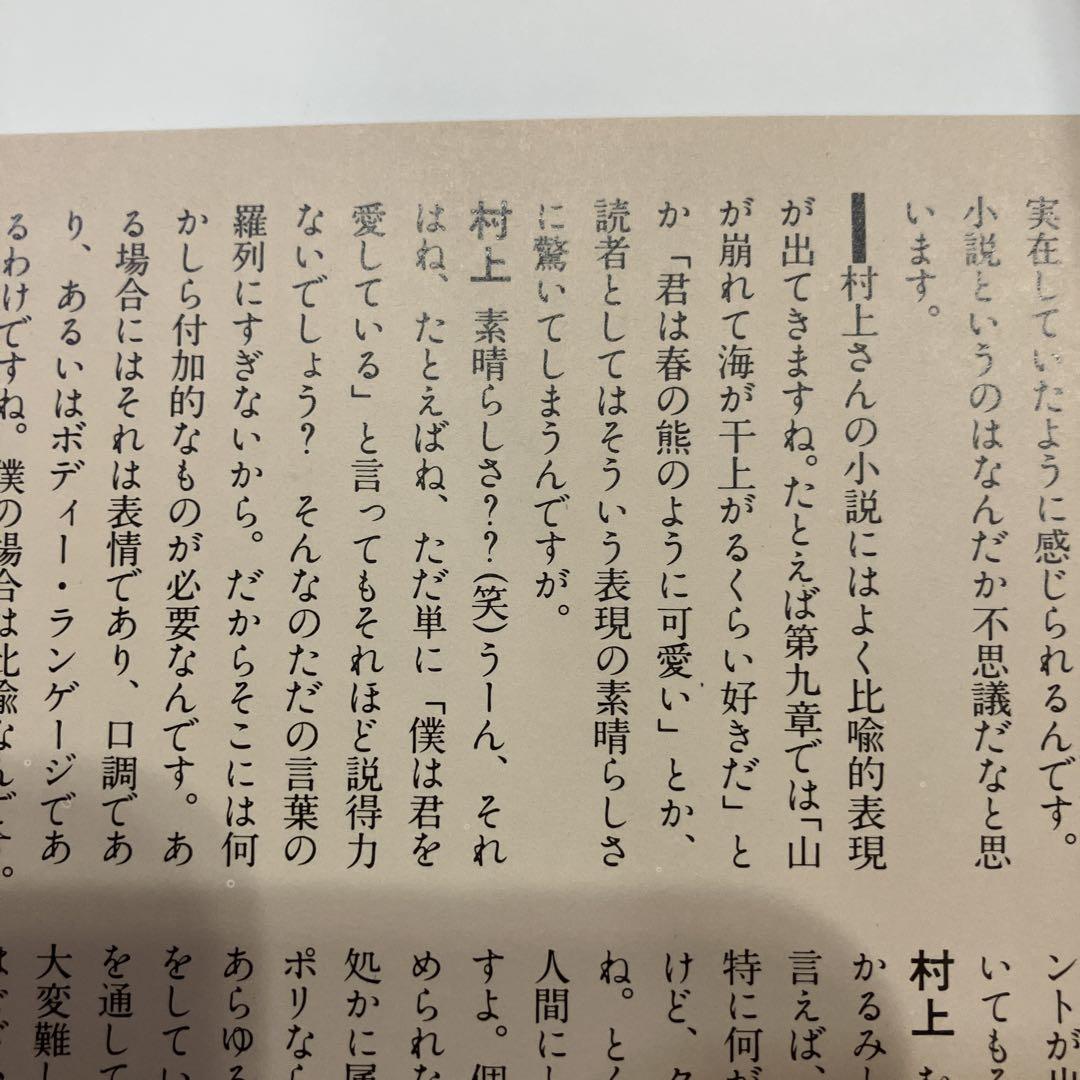 実在していたように感じられるんです。
小説というのはなんだか不思議だなと思
います。
――村上さんの小説にはよく比喩的表現
が出てきますね。たとえば第九章では「山
が崩れて海が干上がるくらい好きだ」と
か「君は春の熊のように可愛い」とか、
読者としてはそういう表現の素晴らしさ
に驚いてしまうんですが。
村上 素晴らしさ??(笑)うーん、それ
はね、たとえばね、ただ単に「僕は君を
愛している」と言ってもそれほど説得力
ないでしょう? そんなのただの言葉の
羅列にすぎないから。だからそこには何
かしら付加的なものが必要なんです。あ
る場合にはそれは表情であり、口調であ
り、あるいはボディー・ランゲージであ
るわけですね。僕の場合は比喩なんです。
ントが
いても
村上
かるみ
言えば、
特に何が
けど、
ね。とく
人間にし
すよ。個
められな
処かに属
ポリなら
あらゆる
をしてい
を通して
大変難し